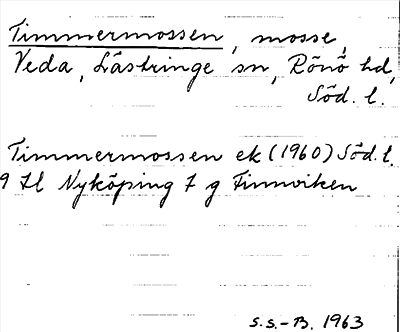 Timmermossen, mosse,
Veda, Lästringe sn, Rönö hd,
Söd. l.
Timmermossen ek (1960) Söd. l.
9 H Nyköping 7 g Finnviken
S.S.-B. 1963